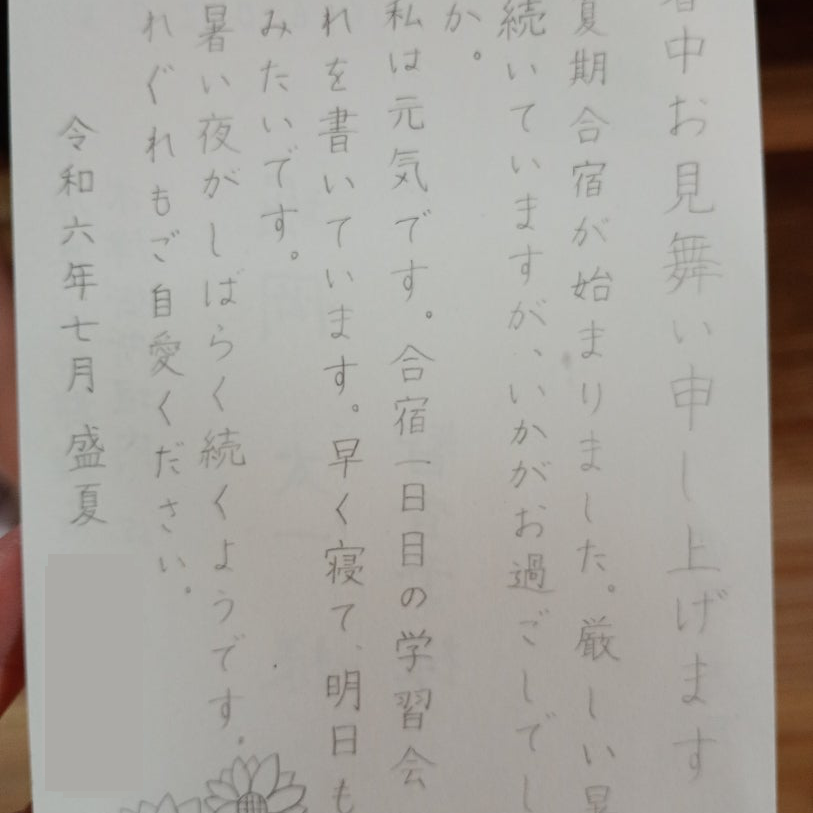 中お見舞い申し上げます
夏期合宿が始まりました。厳しい
続いていますが、いかがお過ごしでし
か。
私は元気です。合宿一日目の学習会
れを書いています。早く寝て、明日も
みたいです。
暑い夜がしばらく続くようです。
れぐれもご自愛ください。
令和六年七月 盛夏